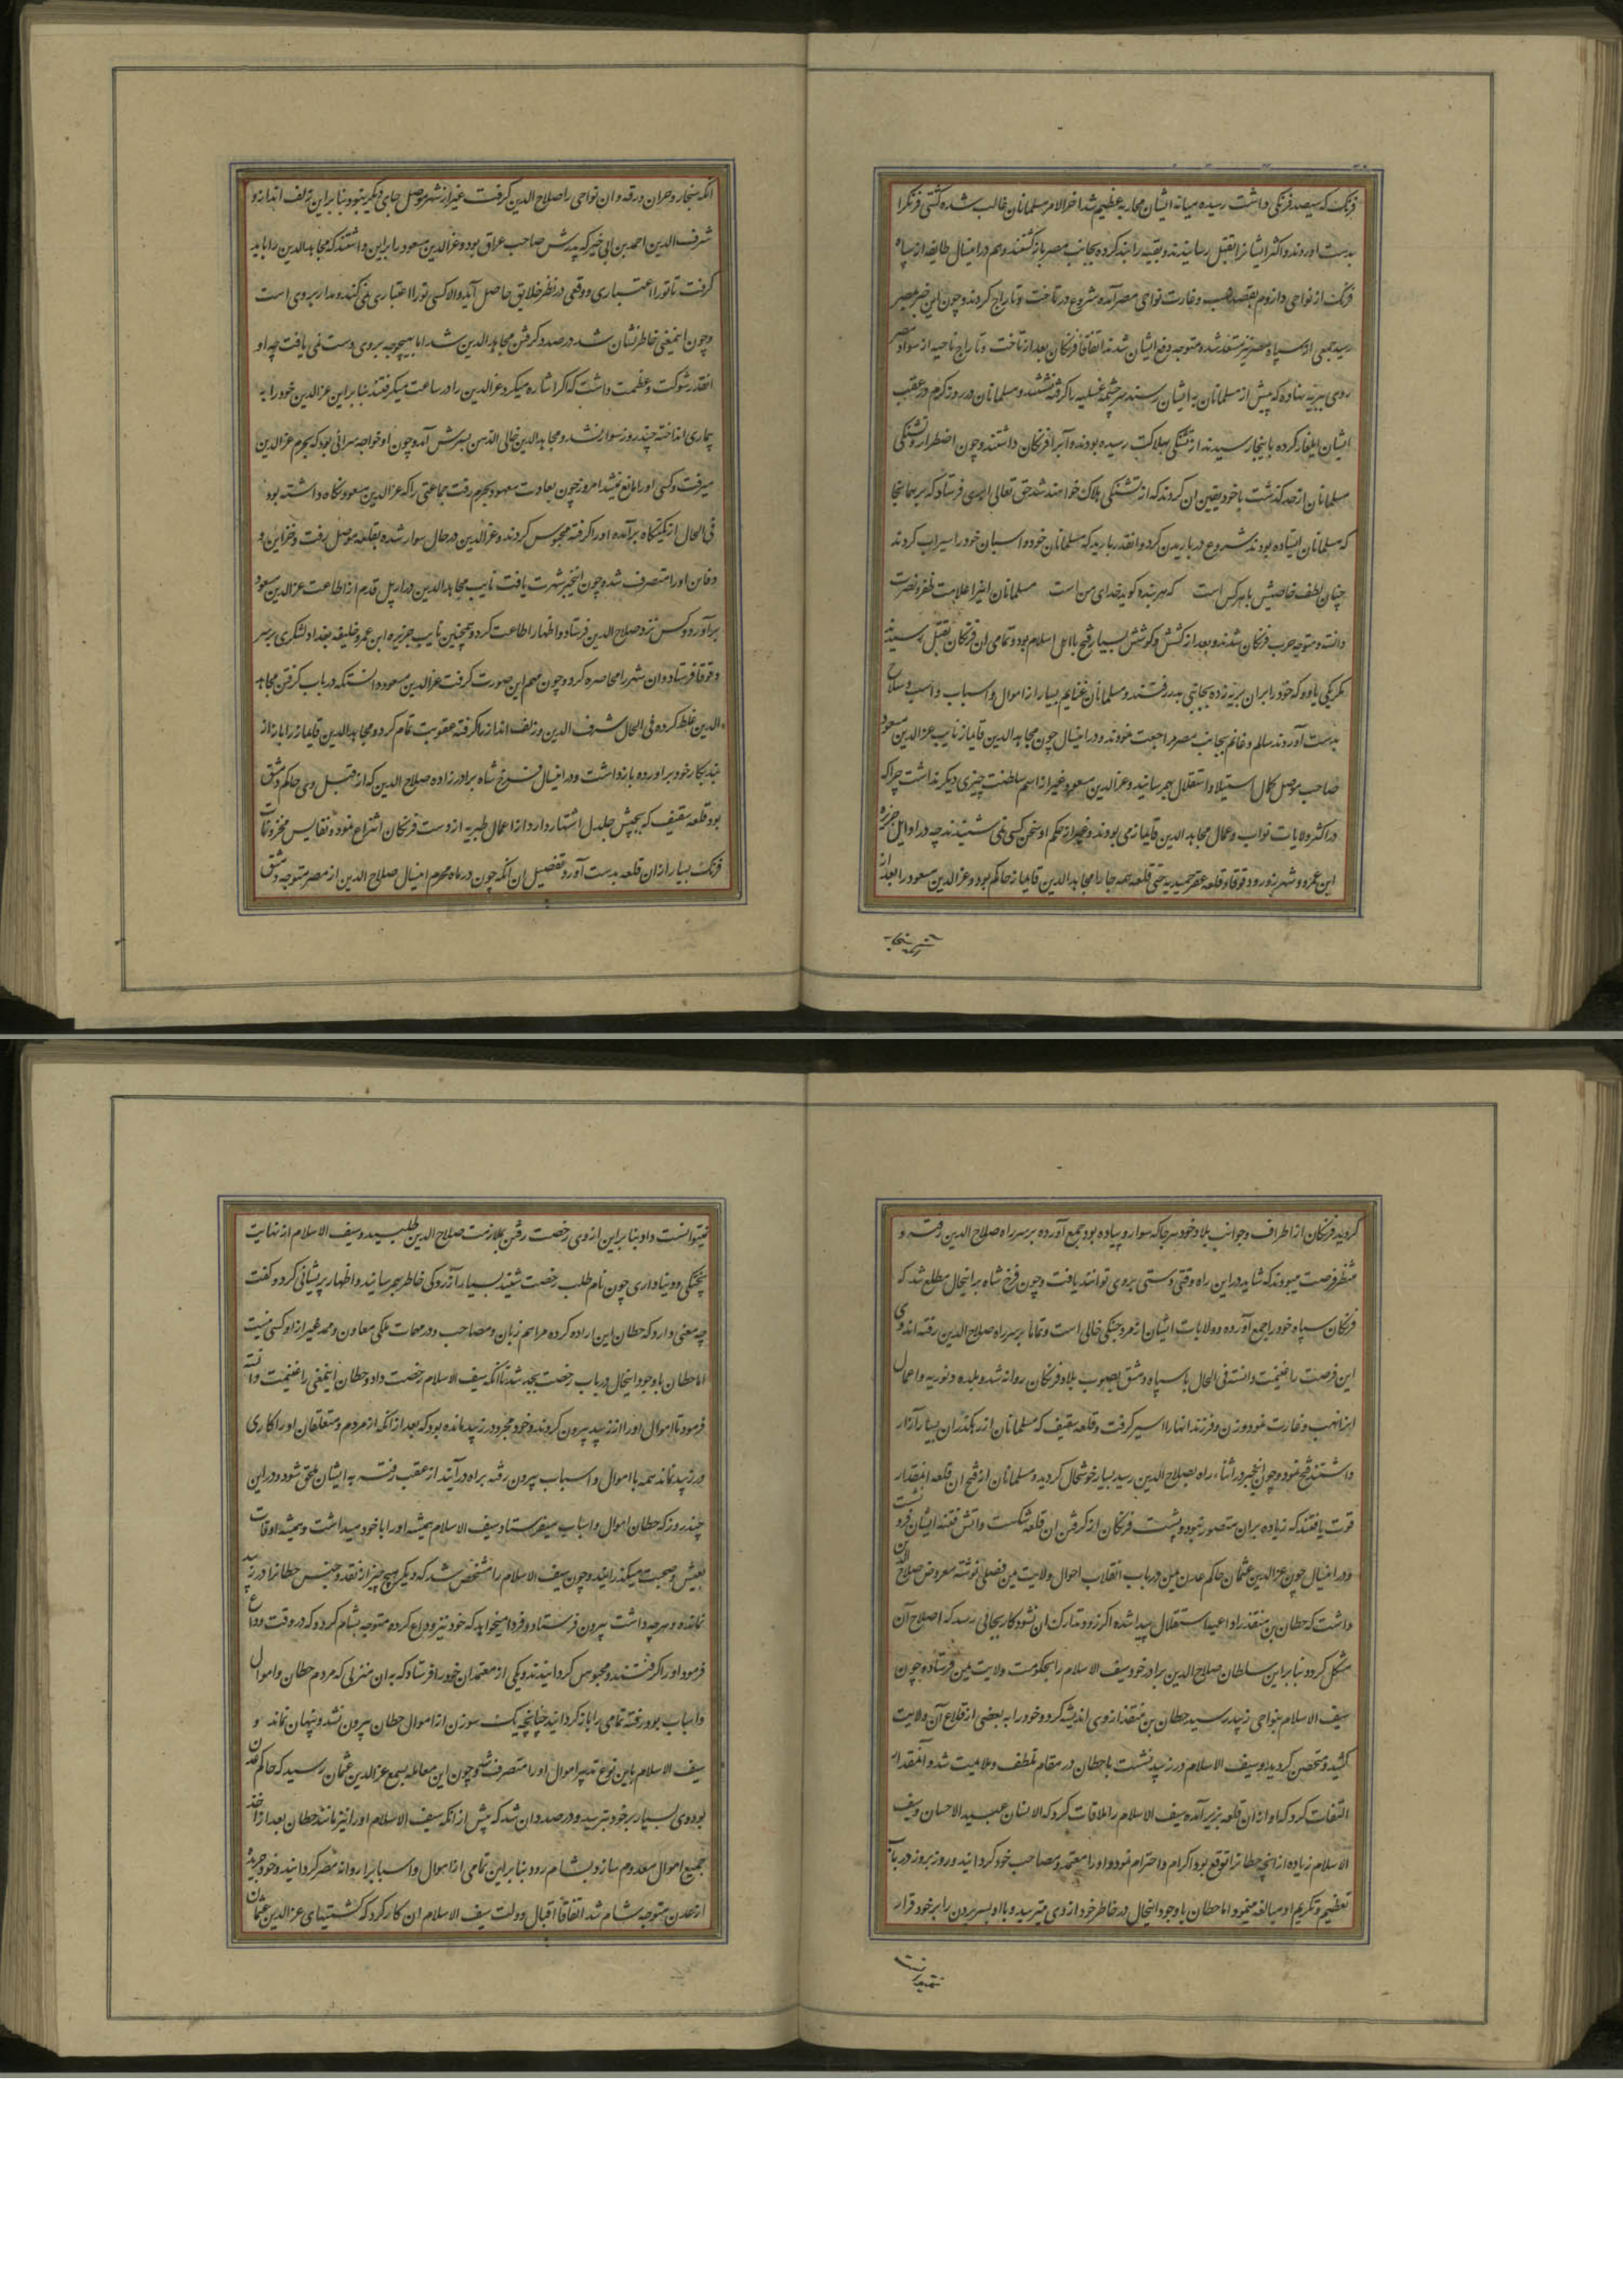 فرنک که سیصد فرنکی داشت رسیده میانه ایشان محاربه عظیم شد اخر الامر مسلمانان غالب شده کشتی فرنکرا
بدست اوردند و اکثر ایشانرا بقتل رسانیدند و بقیه را بند کرده بجانب مصر بازکشتند و هم درانیسال طایفه از سپاه
فرنک از نواحی داروم بقصد نهب و غارت نواحی مصر آمده شروع در تاخت و تاراج کردند و چون این خبر بمصر
رسید جمعی از سپاه مصر نیز مستعد شده متوجه دفع ایشان شدند اتفاقا فرنکان بعد از تاخت و تاراج ناحیه از سواد مصر
روی ببریه نهاده که پیش از مسلمانان به ایشان رسند سر چشمه عسلیه را کرفته نشستند و مسلمانان در روز کرم در عقب
ایشان ایلغار کرده باینجا رسیدند از تشنکی بهلاکت رسیده بودند و آبرا فرنکان داشتند و چون اضطرار و تشنکی
مسلمانان از حد کذشت با خود یقین ان کردند که از تشنکی هلاک خواهند شد حق تعالی ابری فرستاد که بر همانجا
که مسلمانان ایستاده بودند شروع در باریدن کرد و انقدر بارید که مسلمانان خود و اسبان خود را سیراب کردند
چنان لطف خاصیش با هر کس است که هر بنده کوید خدای من است مسلمانان اینرا علامت ظفر و نصرت
دانسته متوجه حرب فرنکان شدند و بعد از کشش و کوشش بسیار فتح با اهل اسلام بود و تمامی ان فرنکان بقتل رسیدند
مکر یکی یا دو که خود را بران بریه زده بجانبی بدر رفتند و مسلمانان غنایم بسیار از اموال و اسباب و اسب و سلاح
بدست آوردند سالم و غانم بجانب مصر مراجعت نمودند و درانیسال چون مجاهد الدین قایماز نایب عز الدین مسعود
صاحب موصل کمال استیلا و استقلال بهم رسانید و عز الدین مسعود غیر از اسم سلطنت چیزی دیکر نداشت چرا که
در اکثر ولایات نواب و عمال مجاهد الدین قایماز می بودند و بغیر از حکم او سخن کسی نمی شنیدند چه در اوایل جزیره
ابن عمرو و شهرزور و دقوقا و قلعه عقر حمیدیه حتی قلعه همه جا را مجاهد الدین قایماز حاکم بود و عز الدین مسعود را بعد از
انکه سنجار
انکه سنجار و حران و رقه و ان نواحی را صلاح الدین کرفت غیر از شهر موصل جای دیکر نبود بنا براین زلف انداز و
شرف الدین احمد بن ابی خیر که پدرش صاحب عراق بود و عز الدین مسعود را براین داشتند که مجاهد الدین را باید
کرفت تا تو را اعتباری و وقعی در نظر خلایق حاصل آید و الا کسی تو را اعتباری نمی کند و مدار بروی است
و چون اینمعنی خاطر نشان شد در صدد کرفتن مجاهد الدین شد اما بهیچوجه بروی دست نمی یافت چه او
انقدر شوکت و عظمت داشت که اکر اشاره میکرد عز الدین را در ساعت میکرفتند بنا براین عز الدین خود را به
بیماری انداخته چند روز سوار نشد و مجاهد الدین خالی الذهن بپرسش آمد و چون او خواجه سرائی بود که بحرم عز الدین
میرفت و کسی او را مانع نمیشد امروز چون بعادت معهود بحرم رفت جماعتی را که عز الدین مسعود نکاه داشته بود
فی الحال از کمینکاه برآمده او را کرفته محبوس کردند و عز الدین در حال سوار شده بقلعه موصل رفت و خزاین و
دفاین او را متصرف شد و چون اینخبر شهرت یافت نایب مجاهد الدین در اربل قدم از اطاعت عز الدین مسعود
برآورد و کس نزد صلاح الدین فرستاد و اظهار اطاعت کرد و همچنین نایب جزیره ابن عمر و خلیفه بغداد لشکری بر سر
دقوقا فرستاد و ان شهر را محاصره کرد و چون مهم این صورت کرفت عز الدین مسعود دانست که در باب کرفتن مجاهد
الدین غلط کرده فی الحال شرف الدین و زلف انداز را کرفته عقوبت تمام کرد و مجاهد الدین قایماز را باز از
بند بکار خود برآورده باز داشت و درانیسال فرخ شاه برادرزاده صلاح الدین که از قبل وی حاکم دمشق
بود قلعه سقیف که بحبش جلدل اشتهار دارد از اعمال طبریه از دست فرنکان انتزاع نمود و نفایس مخزونات
فرنک بسیار ازان قلعه بدست آورد و تفصیل ان انکه چون در ماه محرم انیسال صلاح الدین از مصر متوجه دمشق
کردید فرنکان از اطراف و جوانب بلاد خود هر جا که سوار و پیاده بود جمع آورده بر سر راه صلاح الدین رفته و
منتظر فرصت میبودند که شاید در این راه وقتی دستی بروی توانند یافت و چون فرخ شاه براینحال مطلع شد که
فرنکان سپاه خود را جمع آورده و ولایات ایشان از مرد جنکی خالی است و تماما بر سر راه صلاح الدین رفته اند وی
این فرصت را غنیمت دانسته فی الحال با سپاه دمشق بصوب بلاد فرنکان روانه شد و بلده دبوریه و اعمال
انرا نهب و غارت نمود و زن و فرزند انها را اسیر کرفت و قلعه سقیف که مسلمانان از رهکذر ان بسیار آزار
داشتند فتح نمود و چون اینخبر در اثناء راه بصلاح الدین رسید بسیار خوشحال کردید و مسلمانان از فتح ان قلعه انمقدار
قوت یافتند که زیاده بران متصور نبود و پشت فرنکان از کرفتن ان قلعه شکست و آتش فتنه ایشان فرو نشست
و درانیسال چون عز الدین عثمان حاکم عدن یمن در باب انقلاب احوال ولایت یمن فصلی نوشته معروض صلاح الدین
داشت که حطان بن منقذ را داعیه استقلال پیدا شده اکر زود تدارک ان نشود کار بجائی رسد که اصلاح آن
مشکل کردد بنا براین سلطان صلاح الدین برادر خود سیف الاسلام را بحکومت ولایت یمن فرستاده چون
سیف الاسلام بنواحی زبید رسید حطان بن منقذ از وی اندیشه کرد و خود را به بعضی از قلاع آن ولایت
کشید و متحصن کردید و سیف الاسلام در زبید نشست با حطان در مقام تلطف و ملایمت شد و آنمقدار
التفات کرد که او ازان قلعه بزیر آمده سیف الاسلام را ملاقات کرد که الانسان عبید الاحسان و سیف
الاسلام زیاده از انچه حطانرا توقع بود اکرام و احترام نمود و او را معتمد و مصاحب خود کردانید و روز بروز در باب
تعظیم و تکریم او مبالغه مینمود اما حطان با وجود اینحال در خاطر خود از وی میترسید و با او بسر بردن را بر خود قرار
نمیتوانست
نمیتوانست داد بنا براین از وی رخصت رفتن بملازمت صلاح الدین طلبید و سیف الاسلام از نهایت
پختکی و دنیاداری چون نام طلب رخصت شنید بسیار آزردکی خاطر بهم رسانید و اظهار پریشانی کرد و کفت
چه معنی دارد که حطان این اراده کرده مرا هم زبان و مصاحب و در مهمات ملکی معاون و ممد غیر از او کسی نیست
اما حطان با وجود اینحال در باب رخصت بجد شد تا انکه سیف الاسلام رخصت داد و حطان اینمعنی را غنیمت دانسته
فرمود تا اموال او را از زبید بیرون کردند و خود مجرد در زبید مانده بود که بعد از انکه از مردم و متعلقان او را کاری
در زبید نماند همه با اموال و اسباب بیرون رفته براه درآیند از عقب رفته به ایشان ملحق شود و در این
چند روز که حطان اموال و اسباب میفرستاد سیف الاسلام همیشه او را با خود میداشت و همیشه اوقات
بعیش و صحبت میکذرانید و چون سیف الاسلام را مشخص شد که دیکر هیچ چیز از نقد و جنس حطانرا در زبید
نمانده و هر چه داشت بیرون فرستاد و فردا میخواهد که خود نیز وداع کرده متوجه شام کردد که در وقت وداع
فرمود او را کرفتند و محبوس کردانیدند و یکی از معتمدان خود را فرستاد که به ان منزلی که مردم حطان و اموال
و اسباب بود رفته تمامی را باز کردانید چنانچه یک سوزن از اموال حطان بیرون نشد و پنهان نماند و
سیف الاسلام باین نوع تدبیر اموال او را متصرف شد و چون این معامله بسمع عز الدین عثمان رسید که حاکم عدن
بود وی بسیار بر خود بترسید و در صدد ان شد که پیش از انکه سیف الاسلام او را نیز مانند حطان بعد از اخذ
جمیع اموال معدوم سازد بشام رود بنا براین تمامی از اموال و اسباب را روانه مصر کردانید و خود جریده
از عدن متوجه شام شد اتفاقا اقبال دولت سیف الاسلام ان کار کرد که کشتیهای عز الدین عثمان